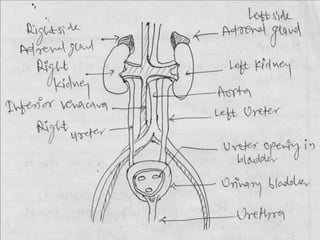 Right side
Adrenal gland
Right
Kidney
Inferior venacava
Right
ureter
Left side
Adrenal gland
Left Kidney
Aorta
Left Ureter
Ureter opening in
bladder
Urinary bladder
Urethra